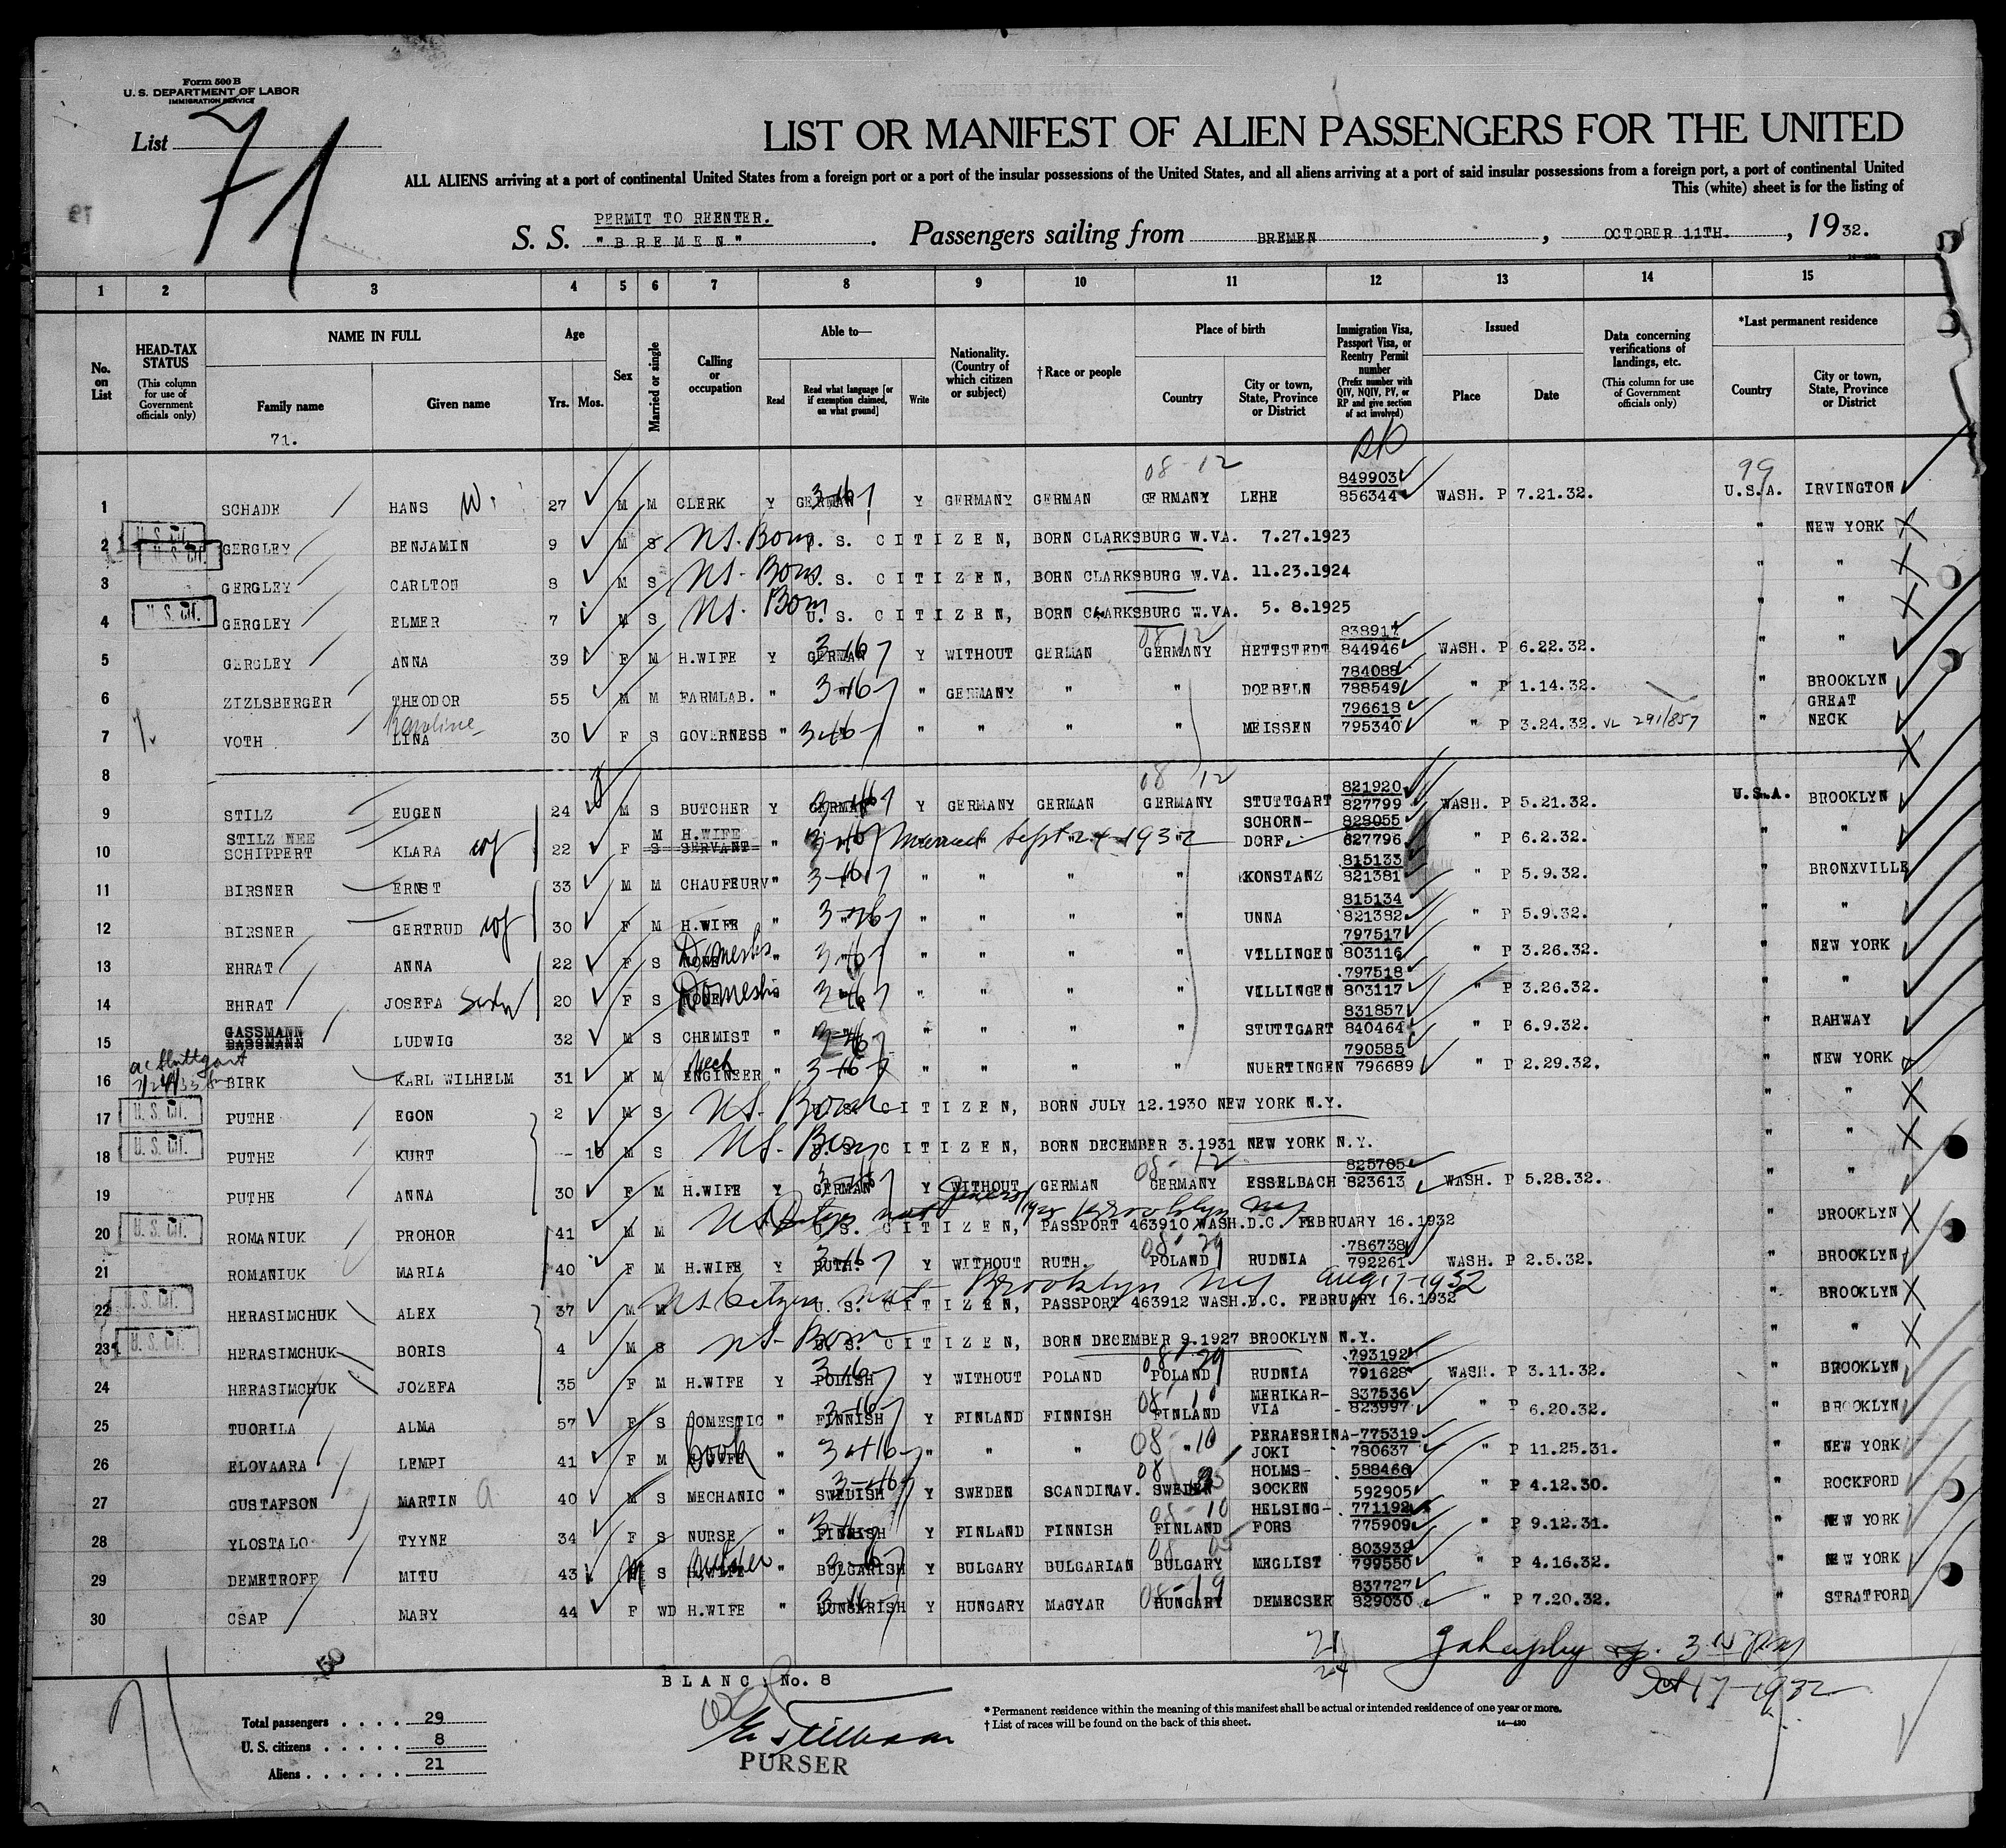 Form 500 B
U. S. DEPARTMENT OF LABOR
IMMIGRATION SERVICE
List 71
LIST OR MANIFEST OF ALIEN PASSENGERS FOR THE UNITED
ALL ALIENS arriving at a port of continental United States from a foreign port or a port of the insular possessions of the United States, and all aliens arriving at a port of said insular possessions from a foreign port, a port of continental United
This (white) sheet is for the listing of
PERMIT TO REENTER.
S. S. "BREMEN". Passengers sailing from BREMEN, OCTOBER 11TH., 1932.
1 2 3 4 5 6 7 8 9 10 11 12 13 14 15
No. on List
HEAD-TAX STATUS (This column for use of Government officials only)
NAME IN FULL
Family name Given name
Age Yrs. Mos.
Sex
Married or single
Calling or occupation
Able to— Read Read what language [or if exemption claimed, on what ground] Write
Nationality. (Country of which citizen or subject)
†Race or people
Place of birth
Country City or town, State, Province or District
Immigration Visa, Passport Visa, or Reentry Permit number (Prefix number with QIV, NQIV, PV, or RP and give section of act involved)
Issued Place Date
Data concerning verifications of landings, etc. (This column for use of Government officials only)
*Last permanent residence
Country City or town, State, Province or District
71.
08-12 849903 99
1 SCHADE HANS W. 27 M M CLERK Y GERMAN Y GERMANY GERMAN GERMANY LEHE 856344 WASH. P 7.21.32. U.S.A. IRVINGTON
2 U. S. Cit. GERGLEY BENJAMIN 9 M S US. Born U. S. CITIZEN, BORN CLARKSBURG W.VA. 7.27.1923 " NEW YORK
3 U. S. Cit. GERGLEY CARLTON 8 M S US. Born U. S. CITIZEN, BORN CLARKSBURG W.VA. 11.23.1924 " "
4 U. S. Cit. GERGLEY ELMER 7 M S US. Born U. S. CITIZEN, BORN CLARKSBURG W.VA. 5. 8.1925 " "
08-12 838917
5 GERGLEY ANNA 39 F M H.WIFE Y GERMAN Y WITHOUT GERMAN GERMANY HETTSTEDT 844946 WASH. P 6.22.32. " "
784088
6 ZIZLSBERGER THEODOR 55 M M FARMLAB. " " GERMANY " " DOEBELN 788549 " P 1.14.32. " BROOKLYN
Karoline 796618 GREAT
7 VOTH LINA 30 F S GOVERNESS " 3-16 " " " " MEISSEN 795340 " P 3.24.32. VL 291/857 " NECK
8
08 12 821920
9 STILZ EUGEN 24 M S BUTCHER Y GERMAN Y GERMANY GERMAN GERMANY STUTTGART 827799 WASH. P 5.21.32. U.S.A. BROOKLYN
STILZ NEE M H.WIFE SCHORN- 828055
10 SCHIPPERT KLARA wf 22 F S SERVANT " Married Sept 24 1932 DORF. 827796 " P 6.2.32. " "
815133
11 BIRSNER ERNST 33 M M CHAUFEURV " " " " " KONSTANZ 821381 " P 5.9.32. " BRONXVILLE
815134
12 BIRSNER GERTRUD wf 30 F M H.WIFE " " " " " UNNA 821382 " P 5.9.32. " "
797517
13 EHRAT ANNA 22 F S NONE Domestic " " " " " VILLINGEN 803116 " P 3.26.32. " NEW YORK
797518
14 EHRAT JOSEFA Sister 20 F S NONE Domestic " " " " VILLINGEN 803117 " P 3.26.32. " "
GASSMANN 831857
15 BASSMANN LUDWIG 32 M S CHEMIST " " " " " STUTTGART 840464 " P 6.9.32. " RAHWAY
ac Stuttgart Mech 790585
16 BIRK KARL WILHELM 31 M M ENGINEER " " " " " NUERTINGEN 796689 " P 2.29.32. " NEW YORK
17 U. S. Cit. PUTHE EGON 2 M S US. Born U. S. CITIZEN, BORN JULY 12.1930 NEW YORK N.Y. " "
18 U. S. Cit. PUTHE KURT - 10 M S US. Born U. S. CITIZEN, BORN DECEMBER 3.1931 NEW YORK N.Y. " "
08-12 825705
19 PUTHE ANNA 30 F M H.WIFE Y GERMAN Y WITHOUT GERMAN GERMANY ESSELBACH 823613 WASH. P 5.28.32. " "
20 U. S. Cit. ROMANIUK PROHOR 41 M M U. S. CITIZEN, PASSPORT 463910 WASH.D.C. FEBRUARY 16.1932 " BROOKLYN
08-29 786738
21 ROMANIUK MARIA 40 F M H.WIFE Y RUTH. Y WITHOUT RUTH. POLAND RUDNIA 792261 WASH. P 2.5.32. " BROOKLYN
US Citizen nat Brooklyn NY Aug 17-1932
22 U. S. Cit. HERASIMCHUK ALEX 37 M M U. S. CITIZEN, PASSPORT 463912 WASH.D.C. FEBRUARY 16.1932 " BROOKLYN
23 U. S. Cit. HERASIMCHUK BORIS 4 M S US. Born U. S. CITIZEN, BORN DECEMBER 9.1927 BROOKLYN N.Y. " "
08 29 793192
24 HERASIMCHUK JOZEFA 35 F M H.WIFE Y POLISH Y WITHOUT POLAND POLAND RUDNIA 791628 WASH. P 3.11.32. " BROOKLYN
08 10 MERIKAR- 837536
25 TUORILA ALMA 57 F S DOMESTIC " FINNISH Y FINLAND FINNISH FINLAND VIA 823997 " P 6.20.32. " BROOKLYN
PERAESEINA- 775319
26 ELOVAARA LEMPI 41 F M Cook " 3-16 " " " 08-10 JOKI 780637 " P 11.25.31. " NEW YORK
HOLMS- 588466
27 GUSTAFSON MARTIN A 40 M S MECHANIC " SWEDISH Y SWEDEN SCANDINAV. SWEDEN SOCKEN 592905 " P 4.12.30. " ROCKFORD
08-10 HELSING- 771192
28 YLOSTALO TYYNE 34 F S NURSE " FINNISH Y FINLAND FINNISH FINLAND FORS 775909 " P 9.12.31. " NEW YORK
803939
29 DEMETROFF MITU 43 M S H.WIFE " BULGARISH Y BULGARY BULGARIAN BULGARY MEGLIST 799550 " P 4.16.32. " NEW YORK
08-19 837727
30 CSAP MARY 44 F WD H.WIFE " HUNGARISH Y HUNGARY MAGYAR HUNGARY DEMECSER 829030 " P 7.20.32. " STRATFORD
Oct 17-1932
BLANC. No. 8
Total passengers . . . . 29
U. S. citizens . . . . . 8
Aliens . . . . . . 21
PURSER
* Permanent residence within the meaning of this manifest shall be actual or intended residence of one year or more.
† List of races will be found on the back of this sheet.
14—430